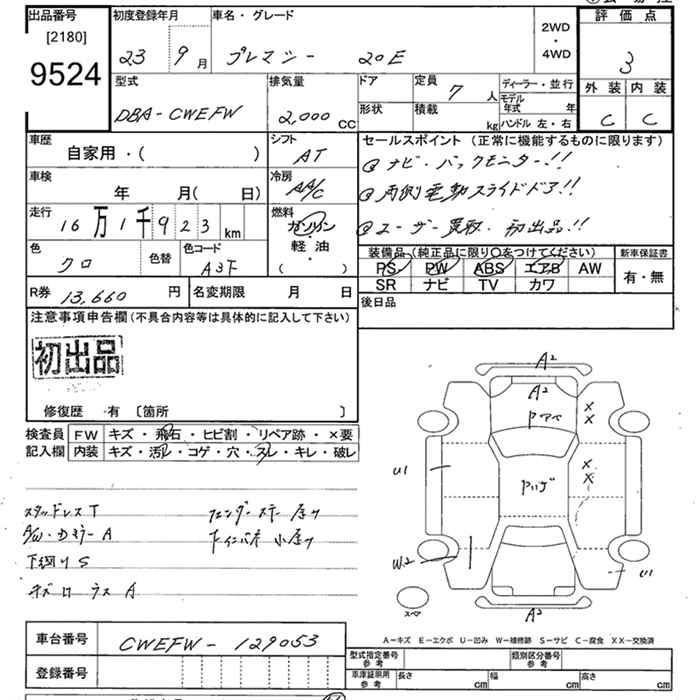 出品番号
[2180]
9524
初度登録年月
23 9月
車名・グレード
プレマシー 20E
2WD
・
4WD
評価点
3
外装 内装
C C
型式
DBA-CWEFW
排気量
2,000 CC
ドア
形状
定員
7人
積載
kg
ディーラー・並行
モデル年式 年
ハンドル 左・右
車歴
自家用・( )
シフト
AT
セールスポイント (正常に機能するものに限ります)
◎ナビ・バックモニター!!
◎両側電動スライドドア!!
◎ユーザー買取・初出品!!
車検
年 月( 日)
冷房
AA/C
走行
16万1千923km
燃料
ガソリン
・
軽・油
( )
色
クロ
色替
色コード
A3F
装備品(純正品に限り○をつけてください)
PS PW ABS エアB AW
SR ナビ TV カワ
新車保証書
有・無
R券 13,660 円
名変期限 月 日
後日品
注意事項申告欄(不具合内容等は具体的に記入して下さい)
初出品
修復歴 ・有 〔箇所 〕
検査員記入欄
FW キズ・飛石・ヒビ割・リペア跡・×要
内装 キズ・汚レ・コゲ・穴・スレ・キレ・破レ
スタッドレスT
A/W・カラーA
下廻りS
キズ A
フェンダーステー 小サ
小サ
A2
A2
X
X
X
X
U1
W2
U1
A2
スペア
A-キズ E-エクボ U-凹み W-補修跡 S-サビ C-腐食 XX-交換済
車台番号
CWEFW-129053
登録番号
型式指定番号
参考
類別区分番号
参考
車庫証明用
参考
長さ cm
幅 cm
高さ cm